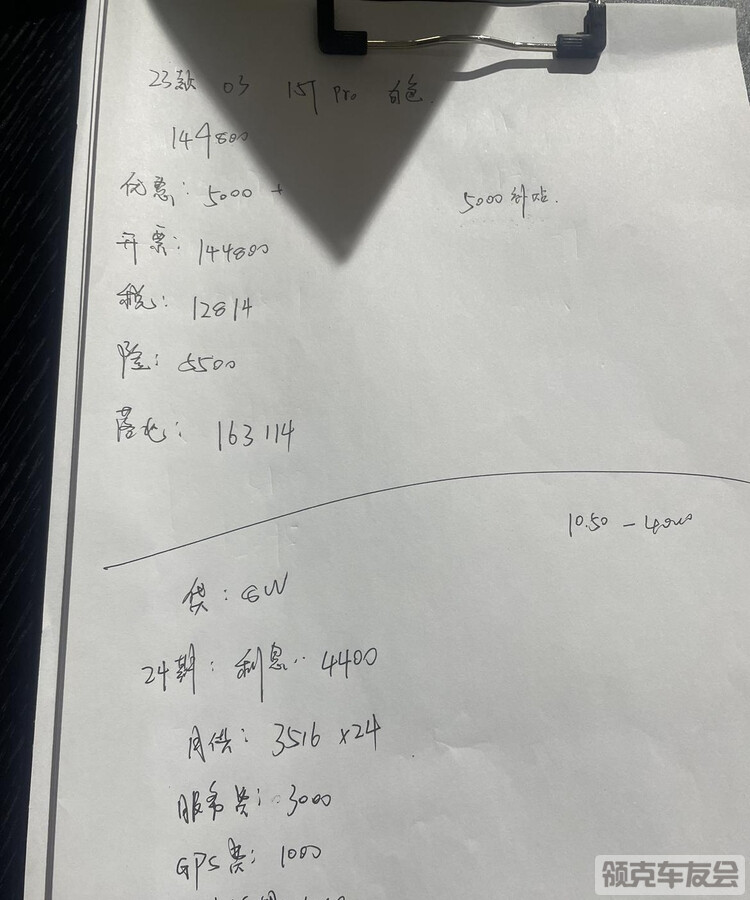 23款 03 15T Pro 白色.
144800
优惠: 5000 + 5000补贴.
开票: 144800
税: 12814
险: 5500
落地: 163114
10.50 - 4000
贷: 8W
24期: 利息: 4400
月供: 3516 x24
服务费: 3000
GPS费: 1000
领克车友会